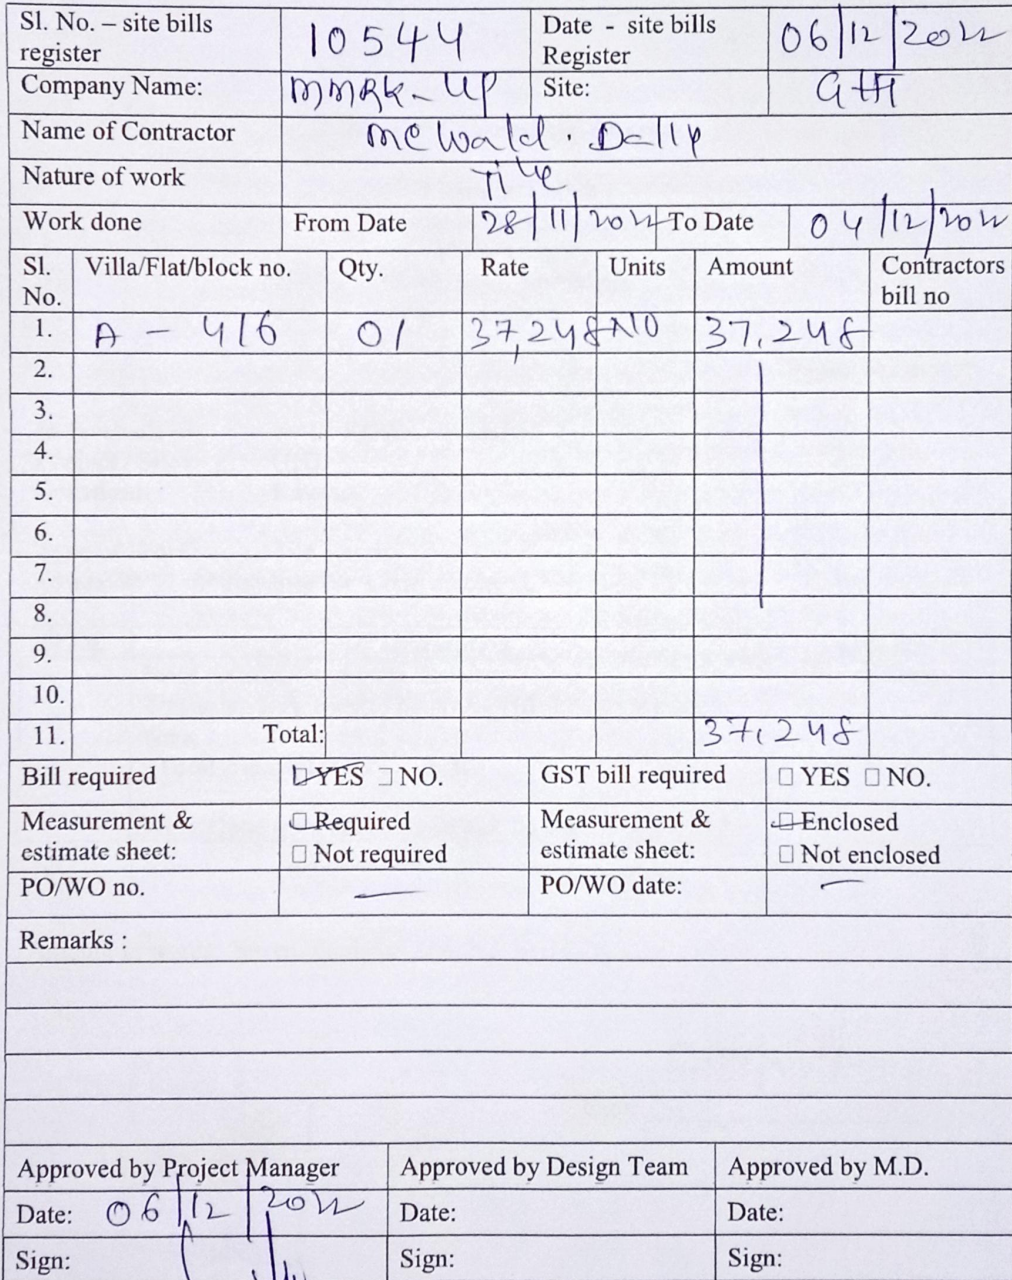 Sl. No. – site bills register 10544 Date - site bills Register 06/12/2022
Company Name: MMRK-UP Site: GHI
Name of Contractor Dally
Nature of work Tile
Work done From Date 28/11/2022 To Date 04/12/2022
Sl. No. Villa/Flat/block no. Qty. Rate Units Amount Contractors bill no
1. A - 416 01 37,248 No 37,248
2.
3.
4.
5.
6.
7.
8.
9.
10.
11. Total: 37,248
Bill required YES NO. GST bill required YES NO.
Measurement & estimate sheet: Required Not required Measurement & estimate sheet: Enclosed Not enclosed
PO/WO no. — PO/WO date: —
Remarks :
Approved by Project Manager Approved by Design Team Approved by M.D.
Date: 06/12/2022 Date: Date:
Sign: Sign: Sign: